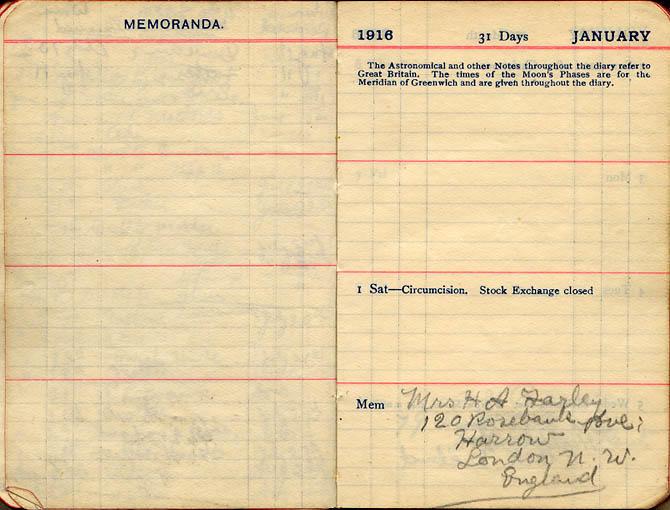 MEMORANDA.
1916 31 Days JANUARY
The Astronomical and other Notes throughout the diary refer to
Great Britain. The times of the Moon's Phases are for the
Meridian of Greenwich and are given throughout the diary.
1 Sat—Circumcision. Stock Exchange closed
Mem Mrs H A Farley
120 Rosebank Ave;
Harrow
London N. W.
England